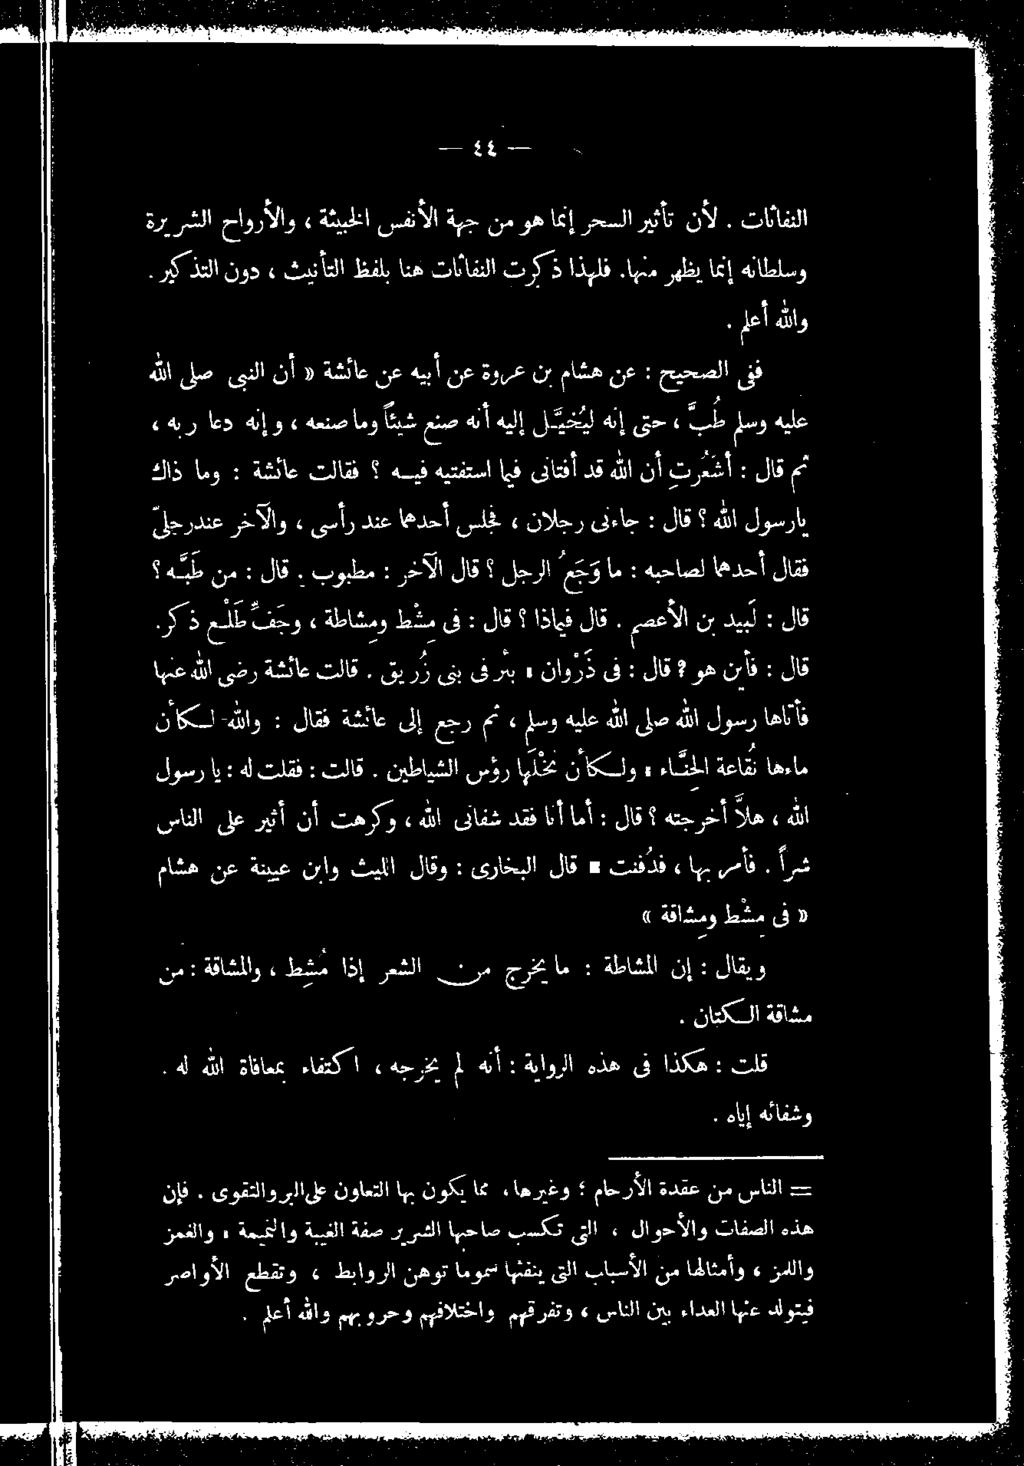 — ٤٤ —
النفاثات . لأن تأثير السحر إنما هو من جهة الأنفس الخبيثة ، والأرواح الشريرة
وسلطانه إنما يظهر منها . فلهذا ذكرت النفاثات هنا بلفظ التأنيث ، دون التذكير .
والله أعلم .
ففى الصحيح : عن هشام بن عروة عن أبيه عن عائشة « أن النبى صلى الله
عليه وسلم طُبَّ ، حتى إنه ليُخيَّل إليه أنه صنع شيئاً وما صنعه ، وإنه دعا ربه ،
ثم قال : أشَعُرتِ أن الله قد أفتانى فيما استفتيته فيه ؟ فقالت عائشة : وما ذاك
يارسول الله ؟ قال : جاءنى رجلان ، فجلس أحدهما عند رأسى ، والآخر عند رجلىّ
فقال أحدهما لصاحبه : ما وَجَعُ الرجل ؟ قال الآخر : مطبوب . قال : من طَبَّه ؟
قال : لَبيد بن الأعصم . قال فيماذا ؟ قال : فى مِشْط ومِشاطة ، وجَفِّ طَلْعِ ذكر .
قال : فأين هو ؟ قال : فى ذَرْوان ، بئر فى بنى زُريق . قالت عائشة رضى الله عنها
فأتاها رسول الله صلى الله عليه وسلم ، ثم رجع إلى عائشة فقال : والله لـكأن
ماءها نُقاعة الحِنَّاء ، ولـكأن نَخْلَها رؤس الشياطين . قالت : فقلت له : يا رسول
الله ، هلاَّ أخرجته ؟ قال : أما أنا فقد شفانى الله ، وكرهت أن أثير على الناس
شراً . فأمر بها ، فدُفنت » قال البخارى : وقال الليث وابن عيينة عن هشام
« فى مِشْط ومِشاقة »
ويقال : إن المشاطة : ما يخرج من الشعر إذا مُشِط ، والمشاقة : من
مشاقة الـكتان .
قلت : هكذا فى هذه الرواية : أنه لم يخرجه ، اكتفاء بمعافاة الله له .
وشفائه إياه .
= الناس من عقدة الأرحام ؛ وغيرها ، مما يكون بها التعاون على البر والتقوى . فإن
هذه الصفات والأحوال ، التى تكسب صاحبها الشرير صفة الغيبة والنميمة ، والغمز
واللمز ، وأمثالها من الأسباب التى ينفثها سموما توهن الروابط ، وتقطع الأواصر
فيتولد عنها العداء بين الناس ، وتفرقهم واختلافهم وحروبهم والله أعلم .